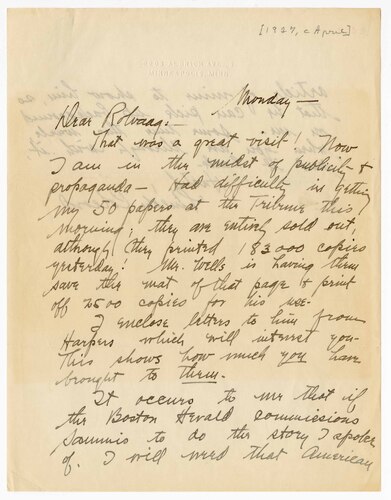 [1927, c April]
MINNEAPOLIS, MINN.
Monday—
Dear Rolvaag:-
That was a great visit! Now
I am in the midst of publicity &
propaganda— Had difficulty in getting
my 50 papers at the Tribune this
morning; they are entirely sold out,
although they printed 183000 copies
yesterday! Mr. Wells is having them
save the mat of that page & print
off 2500 copies for his use-
I enclose letters to him from
Harpers which will interest you-
This shows how much you have
brought to them.
It occurs to me that if
the Boston Herald commissions
Sammis to do the story I spoke
of, I will need that American